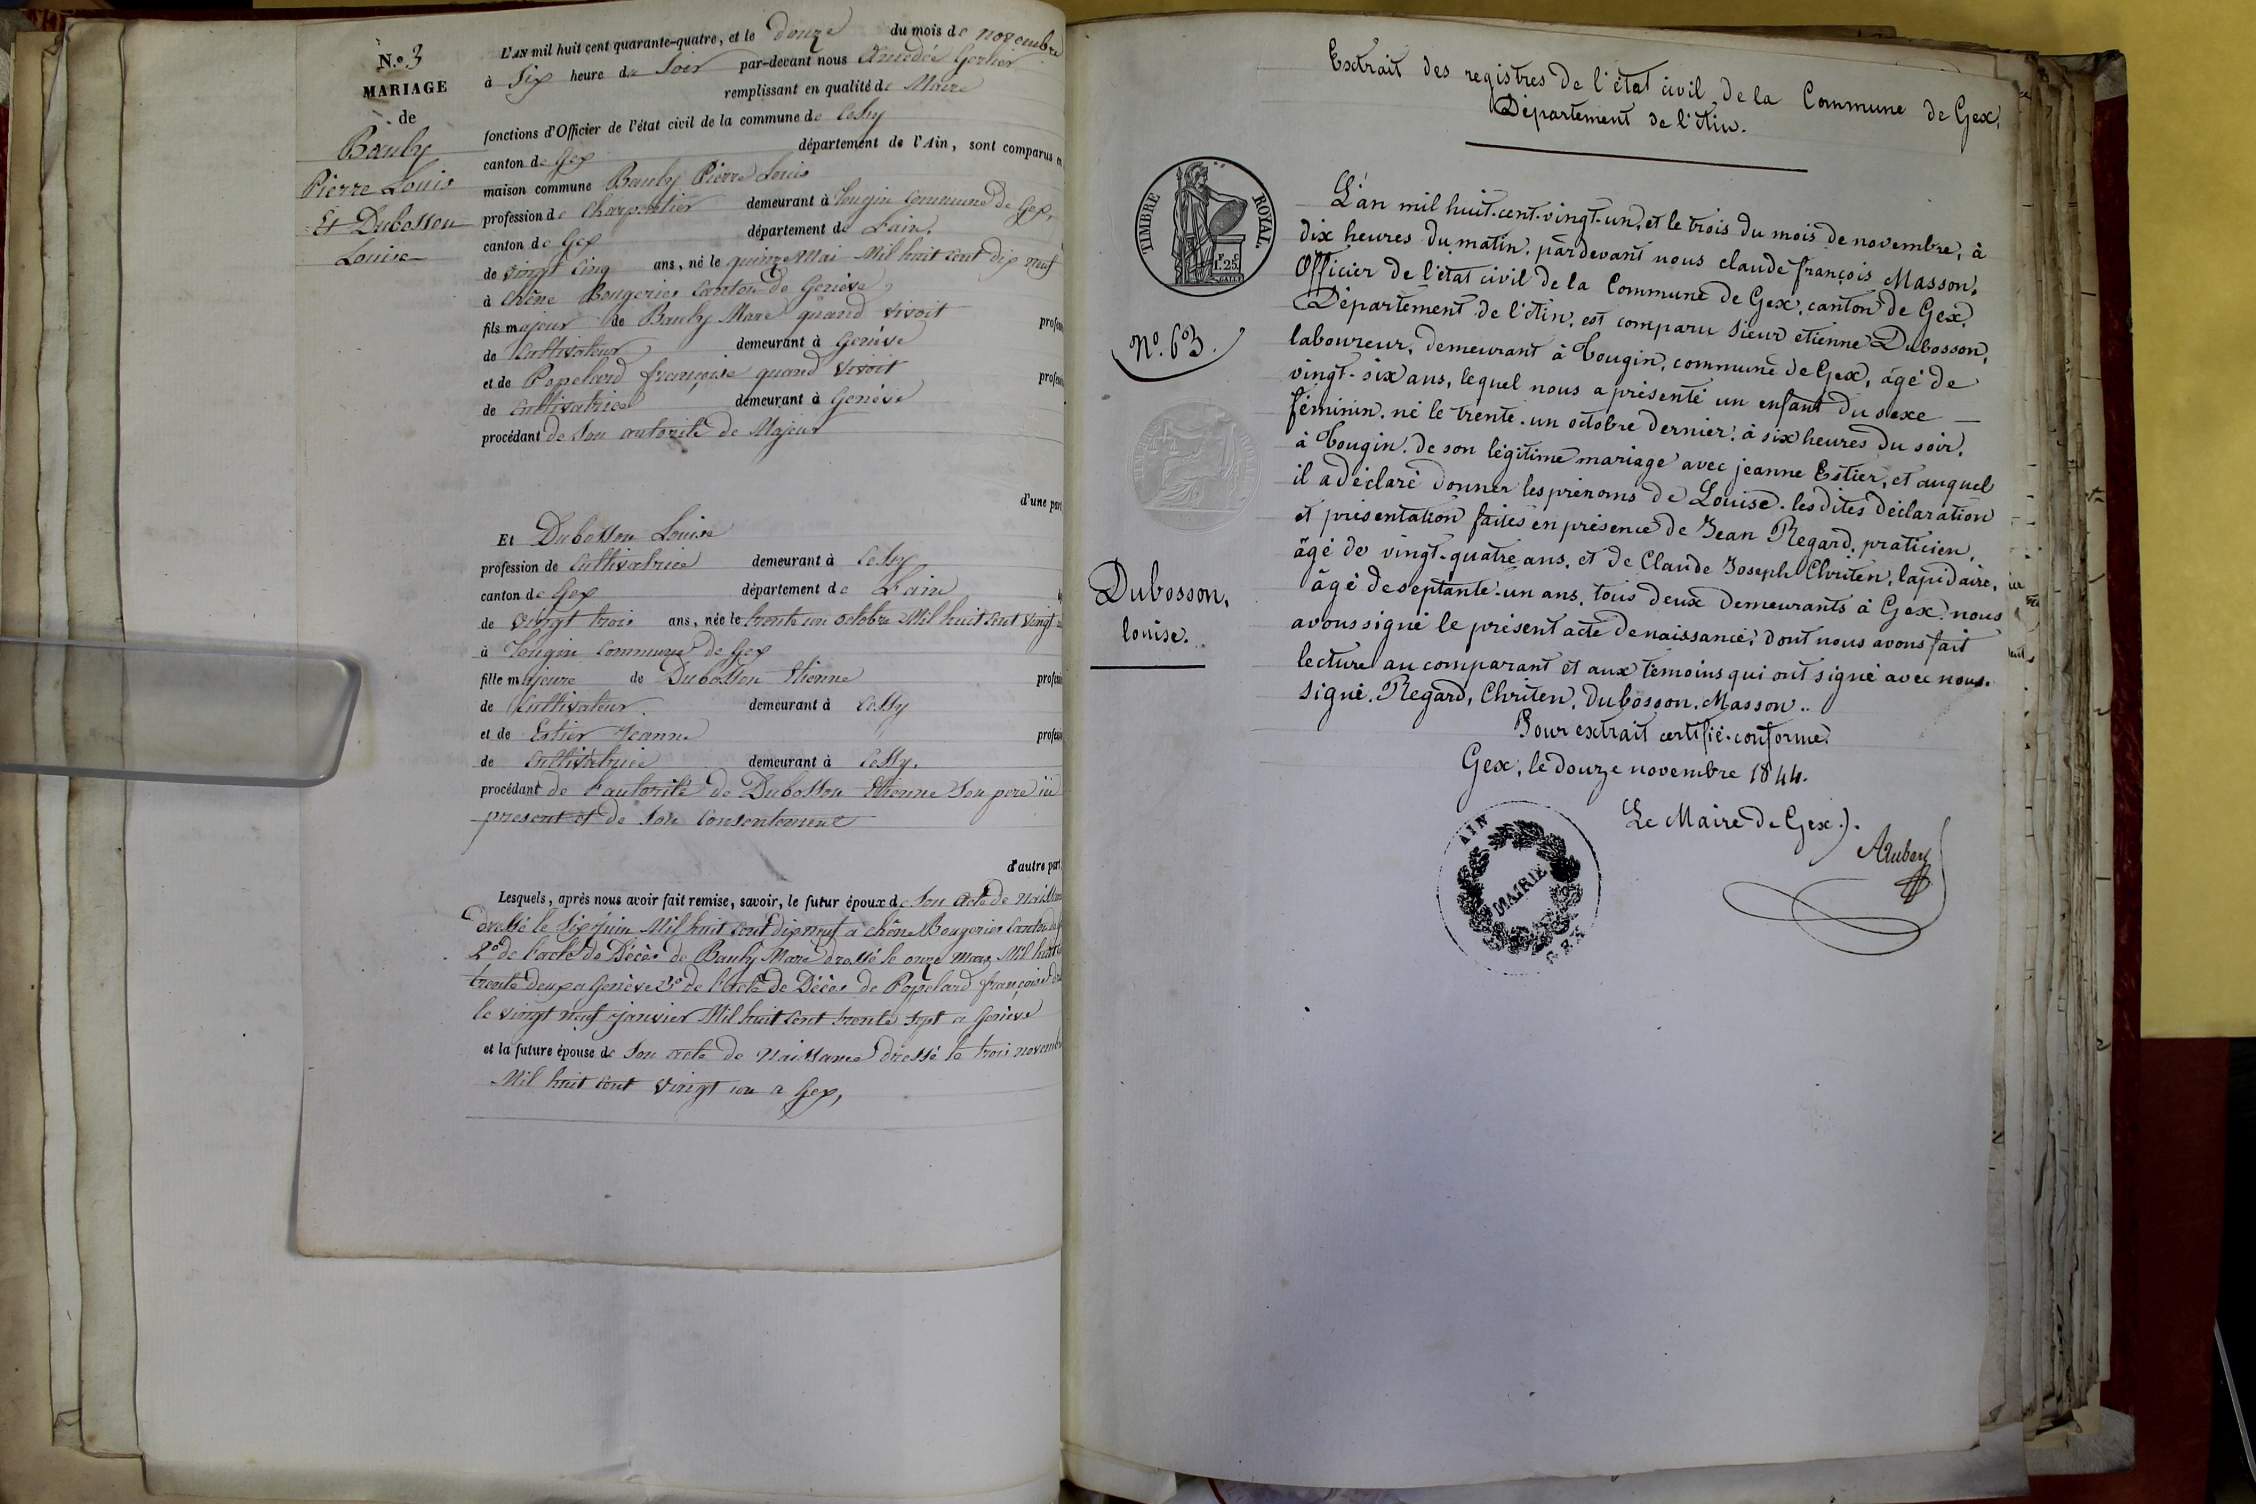 N.o 3
MARIAGE
de
Bauly
Pierre Louis
Et Dubosson
Louise
L'AN mil huit cent quarante-quatre, et le douze du mois de novembre
à Six heure du Soir par-devant nous Amédée Gerlier
remplissant en qualité de Maire
fonctions d'Officier de l'état civil de la commune de Cessy
canton de Gex département de l'Ain, sont comparus en
maison commune Bauly Pierre Louis
profession de Charpentier demeurant à Tougin Commune de Gex,
canton de Gex département de Lain.
de vingt cinq ans, né le quinze Mai Mil huit cent dix neuf
à Chêne Bougeries Canton de Genève,
fils majeur de Bauly Marc quand vivoit profess
de Cultivateur demeurant à Genève
et de Popelard françoise quand vivoit profess
de cultivatrice demeurant à Genève
procédant de Son autorité de Majeur
d'une part
Et Dubosson Louise
profession de Cultivatrice demeurant à Cessy
canton de Gex département de Lain
de vingt trois ans, née le trente un octobre Mil huit cent vingt
à Tougin Commune de Gex
fille majeure de Dubosson Etienne profess
de Cultivateur. demeurant à Cessy
et de Estier Jeanne profess
de Cultivatrice demeurant à Cessy.
procédant de l'autorité de Dubosson Etienne Son pere ici
present et de Son Consentement
d'autre part
Lesquels, après nous avoir fait remise, savoir, le futur époux de Son Acte de naissan
dressé le Six juin Mil huit cent dix neuf a chêne Bougeries Canton de
2o de l'acte de Décès de Bauly Marc dressé le onze Mars Mil huit
trente deux a Genève 3o de l'acte de Décès de Popelard françoise
le vingt neuf janvier Mil huit cent trente sept a Genève
et la future épouse de Son acte de Naissance dressé le trois novemb
Mil huit cent vingt un a Gex,
Extrait des registres de l'état civil de la Commune de Gex,
Département de l'Ain.
TIMBRE ROYAL
1.25
No. 63.
Dubosson,
louise.
L'an mil huit-cent-vingt-un, et le trois du mois de novembre, à
dix heures du matin, pardevant nous claude françois Masson,
Officier de l'état civil de la Commune de Gex, canton de Gex,
Département de l'Ain, est comparu sieur étienne Dubosson,
laboureur, demeurant à Tougin, commune de Gex, âgé de
vingt-six ans, lequel nous a présenté un enfant du sexe
féminin, né le trente-un octobre dernier, à six heures du soir,
à Tougin, de son légitime mariage avec jeanne Estier, et auquel
il a déclaré donner les prénoms de Louise. les dites déclaration
et présentation faites en présence de Jean Regard, praticien,
âgé de vingt-quatre ans, et de Claude Joseph Chriten, lapidaire,
âgé de septante-un ans, tous deux demeurants à Gex. nous
avons signé le présent acte de naissance, dont nous avons fait
lecture au comparant et aux témoins qui ont signé avec nous.
signé. Regard, Chriten, Dubosson, Masson..
Pour extrait certifié-conforme.
Gex, le douze novembre 1844.
Le Maire de Gex.
AAubert
AIN
MAIRIE